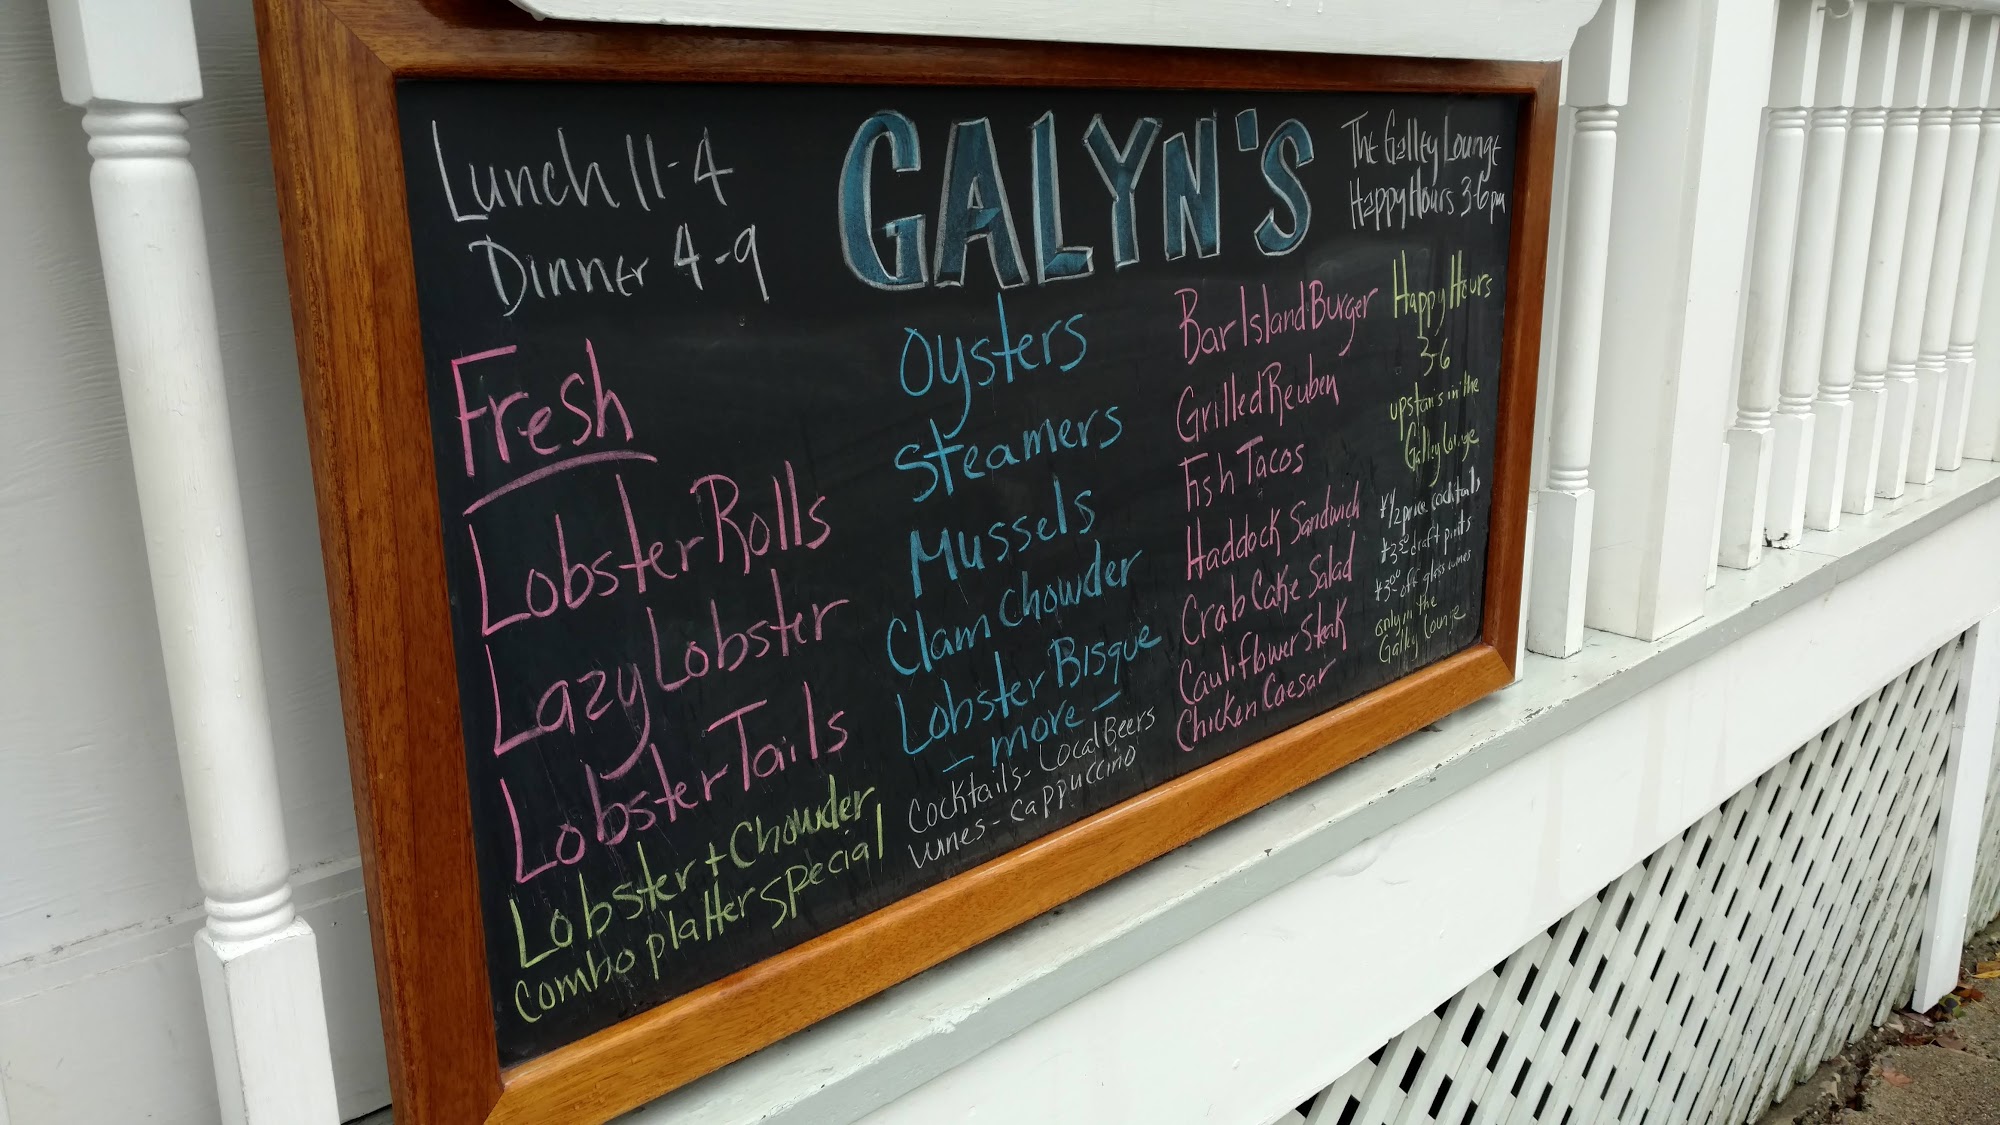 Lunch 11-4
Dinner 4-9
GALYN'S
The Galley Lounge
Happy Hours 3-6pm
Fresh
Lobster Rolls
Lazy Lobster
Lobster Tails
Lobster + Chowder
Combo platter special
Oysters
Steamers
Mussels
Clam Chowder
Lobster Bisque
- more -
Cocktails - Local Beers
Wines - Cappuccino
Bar Island Burger
Grilled Reuben
Fish Tacos
Haddock Sandwich
Crab Cake Salad
Cauliflower Steak
Chicken Caesar
Happy Hours
3-6
upstairs in the
Galley Lounge
* 1/2 price cocktails
draft pints
off glass wines
only in the
Galley Lounge